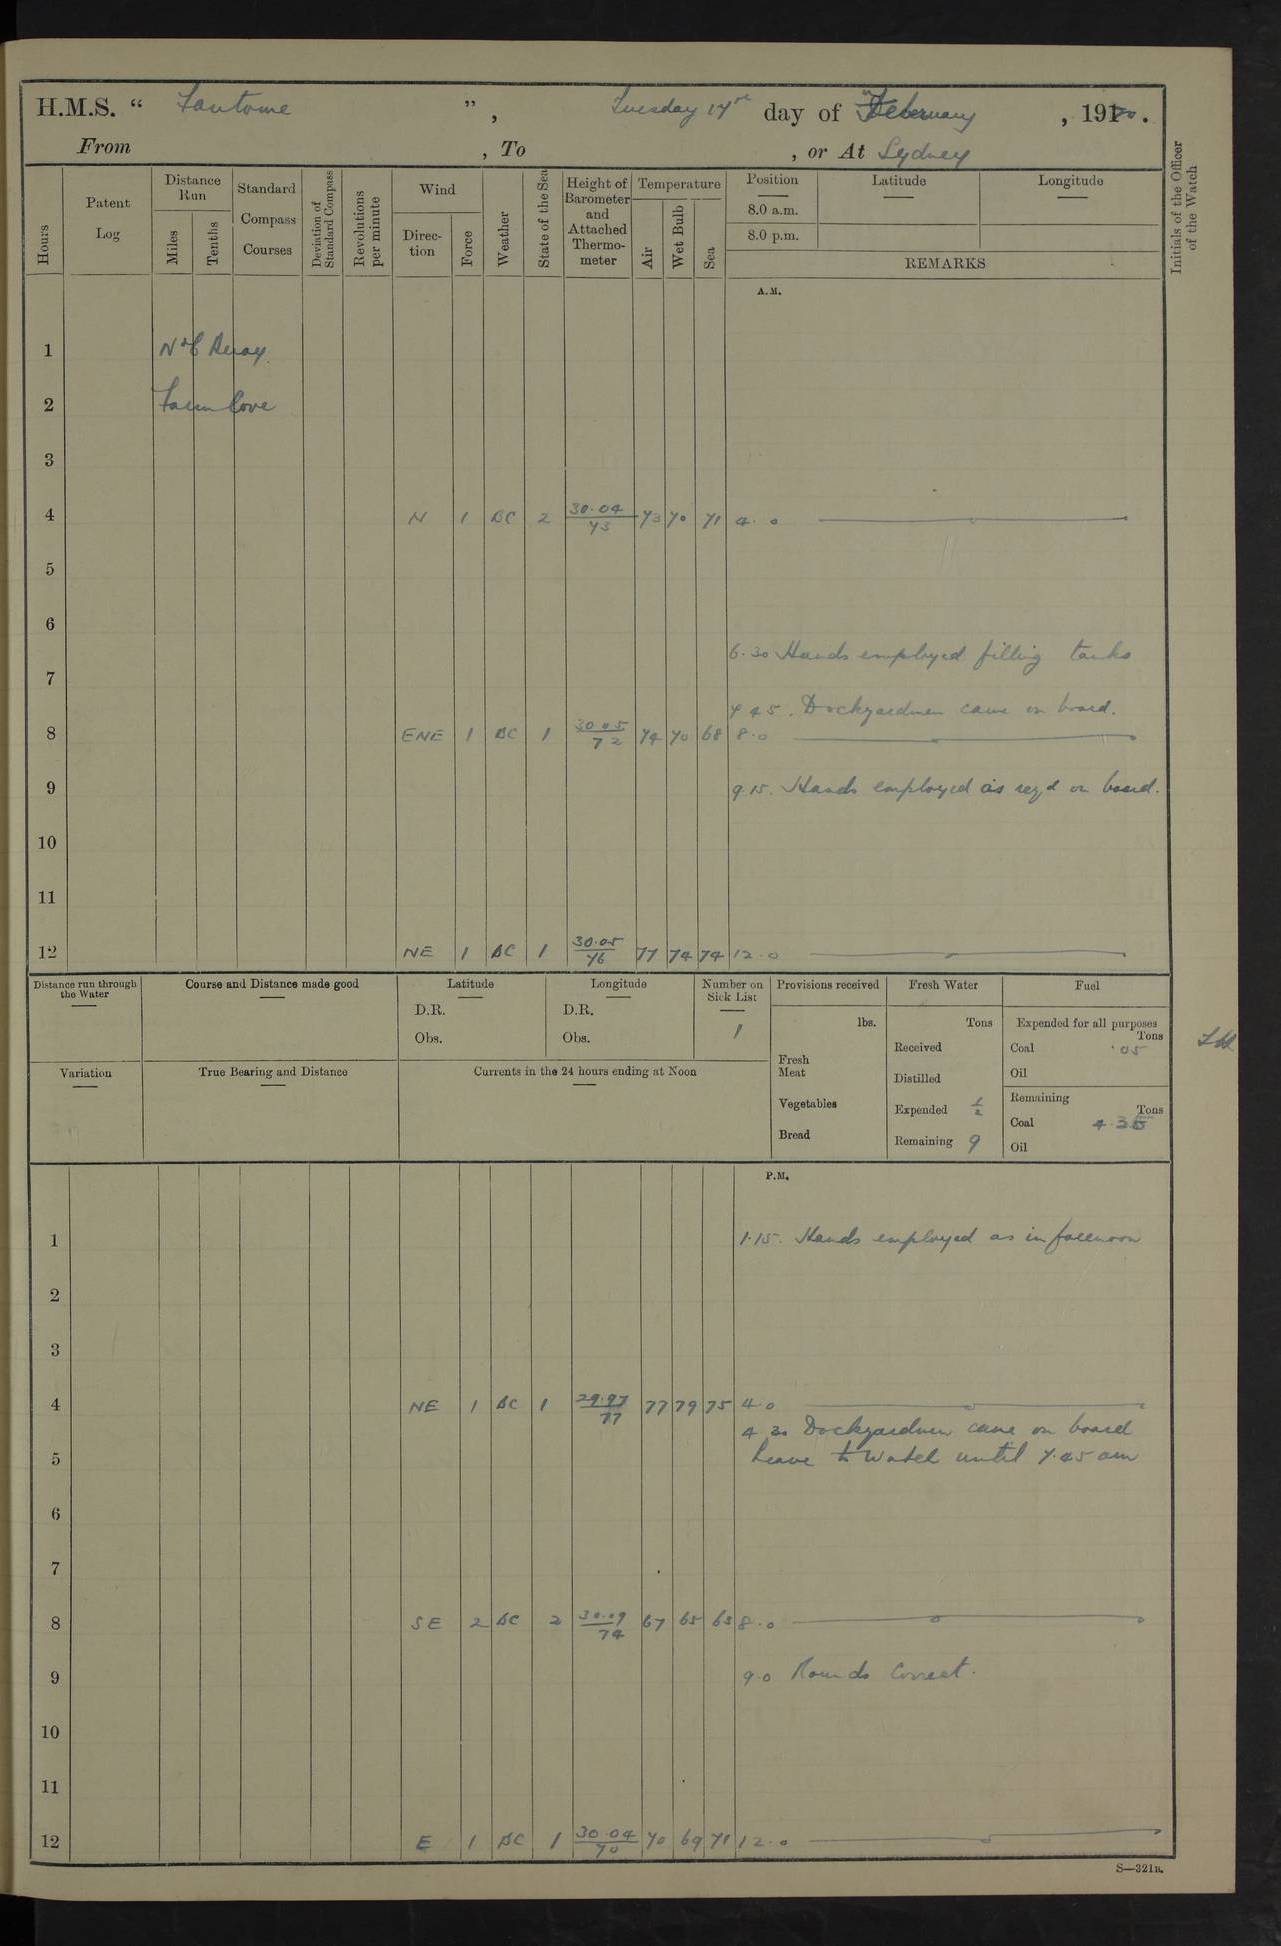 H.M.S. “ Fantome ”, Tuesday 17th day of February, 1920.
From , To , or At Sydney
Hours
Patent Log
Distance Run
Miles
Tenths
Standard Compass Courses
Deviation of Standard Compass
Revolutions per minute
Wind
Direction
Force
Weather
State of the Sea
Height of Barometer and Attached Thermometer
Temperature
Air
Wet Bulb
Sea
Position
8.0 a.m.
8.0 p.m.
Latitude
Longitude
REMARKS
Initials of the Officer of the Watch
A.M.
1 Nº6 Buoy
2 Farm Cove
3
4 N 1 BC 2 30.04 73 73 70 71 4.0
5
6
6.30 Hands employed filling tanks
7
7 45. Dockyardmen came on board.
8 ENE 1 BC 1 30.05 72 74 70 68 8.0
9 9.15. Hands employed as reqd on board.
10
11
12 NE 1 BC 1 30.05 76 77 74 74 12.0
Distance run through the Water
Course and Distance made good
Latitude
D.R.
Obs.
Longitude
D.R.
Obs.
Number on Sick List
1
Provisions received
lbs.
Fresh Meat
Vegetables
Bread
Fresh Water
Tons
Received
Distilled
Expended 1/2
Remaining 9
Fuel
Expended for all purposes
Tons
Coal .05
Oil
Remaining
Tons
Coal 4.35
Oil
Variation
True Bearing and Distance
Currents in the 24 hours ending at Noon
P.M.
1 1.15. Hands employed as in forenoon
2
3
4 NE 1 BC 1 29.97 77 77 79 75 4.0
4 30 Dockyardmen came on board
5 Leave to Watch until 7.45 am
6
7
8 SE 2 BC 2 30.09 74 67 65 63 8.0
9 9.0 Rounds Correct.
10
11
12 E 1 BC 1 30.04 70 70 69 71 12.0
S—321B.